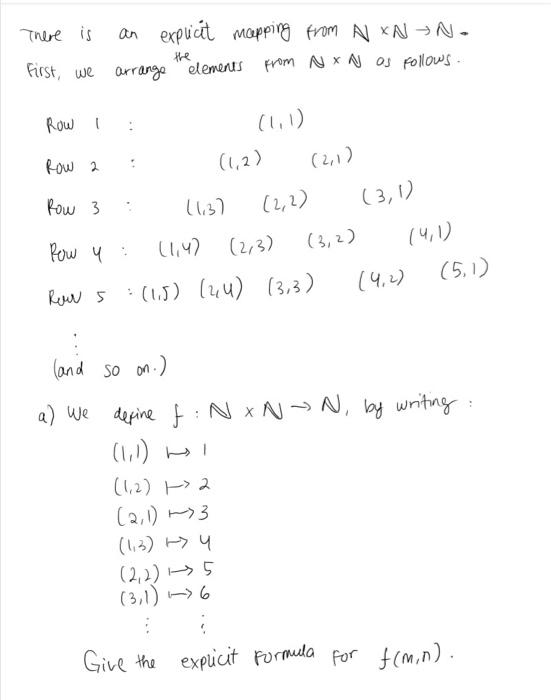 There is an explicit mapping from ℕ × ℕ → ℕ.
First, we arrange the elements from ℕ × ℕ as follows.
Row 1 : (1,1)
Row 2 : (1,2) (2,1)
Row 3 : (1,3) (2,2) (3,1)
Row 4 : (1,4) (2,3) (3,2) (4,1)
Row 5 : (1,5) (2,4) (3,3) (4,2) (5,1)
⋮
(and so on.)
a) We define f : ℕ × ℕ → ℕ, by writing :
(1,1) ↦ 1
(1,2) ↦ 2
(2,1) ↦ 3
(1,3) ↦ 4
(2,2) ↦ 5
(3,1) ↦ 6
⋮ ⋮
Give the explicit formula for f(m,n).